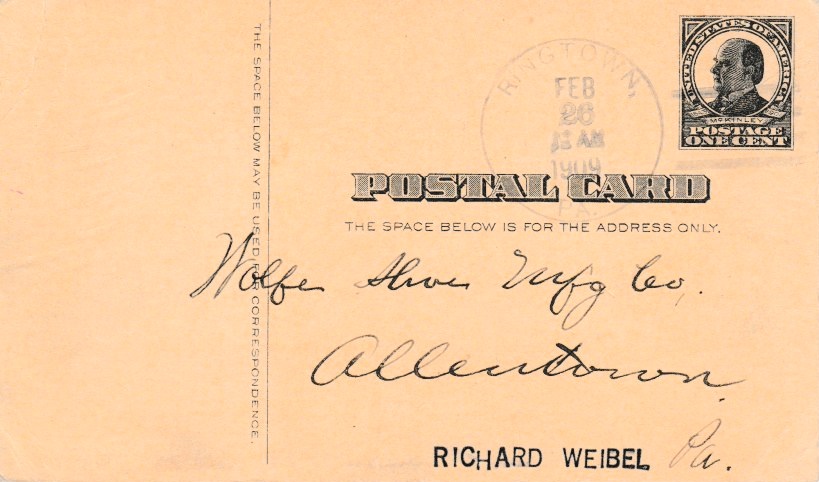 THE SPACE BELOW MAY BE USED FOR CORRESPONDENCE.
UNITED STATES OF AMERICA
McKINLEY
POSTAGE
ONE CENT
RINGTOWN,
FEB
26
AM
1909
PA.
POSTAL CARD
THE SPACE BELOW IS FOR THE ADDRESS ONLY.
Wolfe Shoe Mfg Co,
Allentown.
RICHARD WEIBEL Pa.